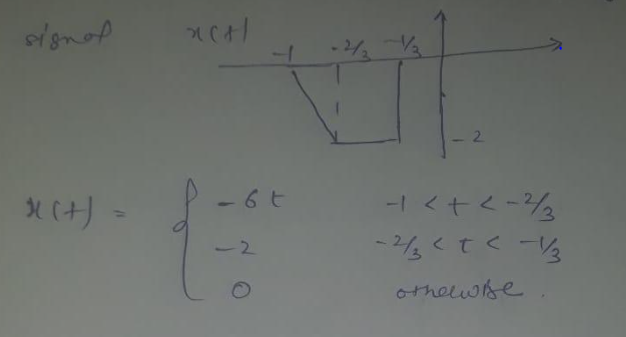 signal x(t)
-1 -2/3 -1/3
-2
x(t) = { -6t -1 < t < -2/3
-2 -2/3 < t < -1/3
0 otherwise.